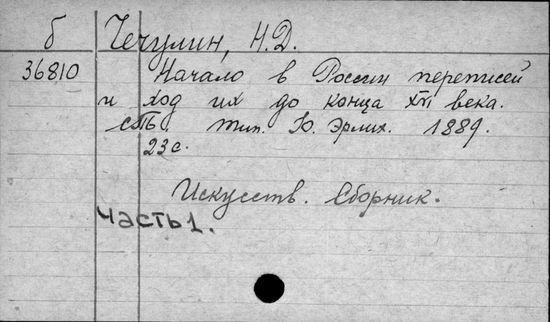 б Чечулин, Н.Д.
36810 Начало в России переписей
и ход их до конца XVI века.
СПБ. тип. Ю. Эрлих. 1889.
23 с.
Искусств. Сборник.
Часть 1.